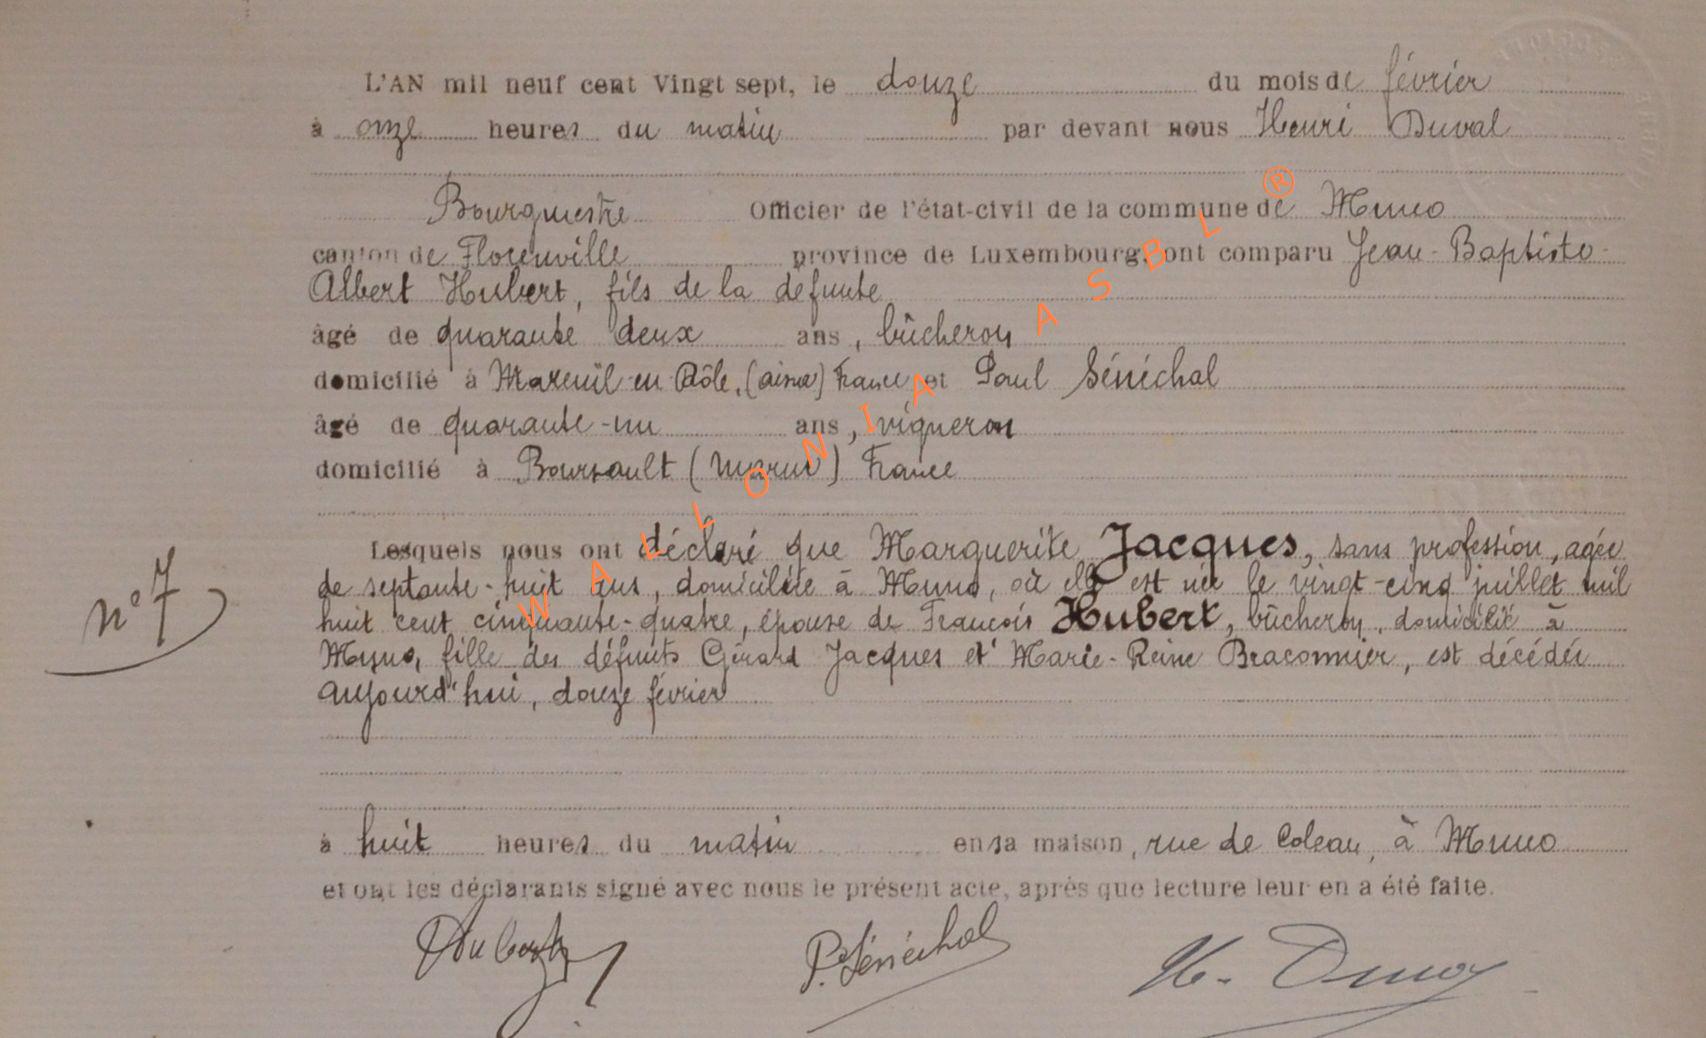 L'AN mil neuf cent Vingt sept, le douze du mois de février
à onze heures du matin par devant nous Henri Duval
Bourgmestre Officier de l'état-civil de la commune de Muno
canton de Florenville province de Luxembourg, ont comparu Jean-Baptiste-
Albert Hubert, fils de la défunte
âgé de quarante deux ans, bûcheron
domicilié à Mareuil-en-Dôle, (aisne) France et Paul Sénéchal
âgé de quarante-un ans, vigneron
domicilié à Boursault (Marne) France
Lesquels nous ont déclaré que Marguerite Jacques, sans profession, agée
n° 7
de septante-huit ans, domiciliée à Muno, où elle est née le vingt-cinq juillet mil
huit cent cinquante-quatre, épouse de François Hubert, bûcheron, domicilié à
Muno, fille des défunts Gérard Jacques et Marie-Reine Braconnier, est décédée
aujourd'hui, douze février
à huit heures du matin en sa maison, rue de Coleau, à Muno
et ont les déclarants signé avec nous le présent acte, après que lecture leur en a été faite.
Hubert P. Sénéchal H. Duval
WALLONIA ASBL ®